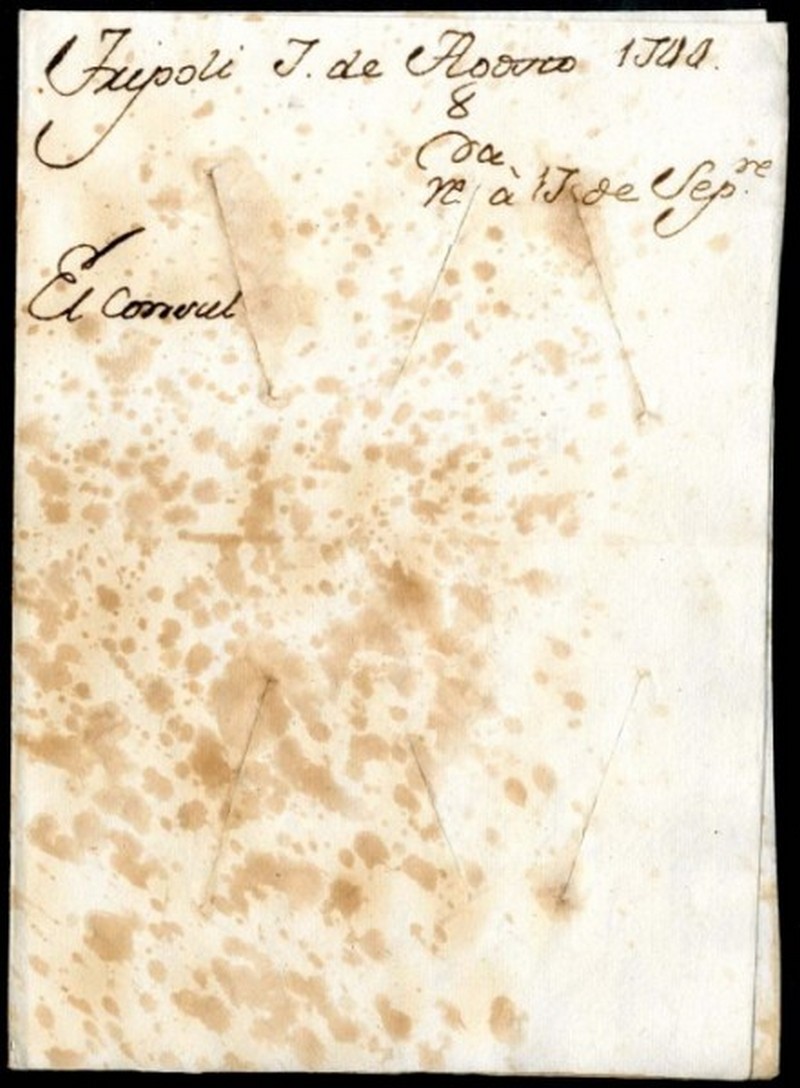 Tripoli 7. de Agosto 1788.
8
da
re à 17 de Sep.re
El Consul